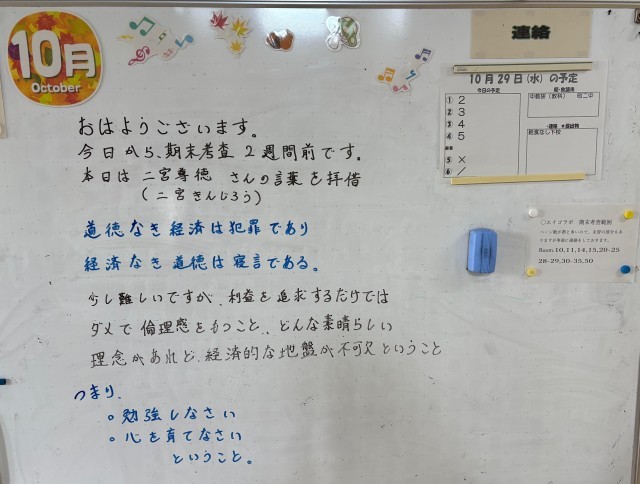 10月
October
連絡
10月29日(水)の予定
今日の予定
① 2
② 3
③ 4
④ 5
⑤ ×
⑥ /
給食なし下校
おはようございます。
今日から、期末考査2週間前です。
本日は 二宮尊徳 さんの言葉を拝借
(二宮きんじろう)
道徳なき経済は犯罪であり
経済なき道徳は寝言である。
少し難しいですが、利益を追求するだけでは
ダメで倫理感をもつこと、どんな素晴らしい
理念があれど、経済的な地盤が不可欠ということ
つまり、
○勉強しなさい
○心を育てなさい
ということ。
期末考査範囲
10,11,14,15,20-25
28-29,30-35,50